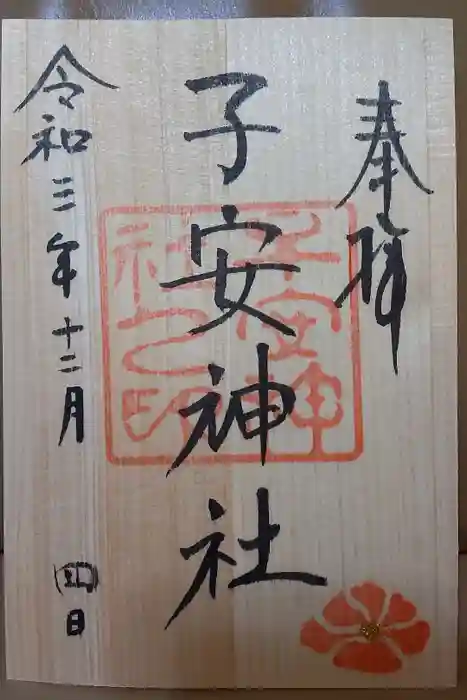 奉拝
子安神社
子安神社之印
令和三年十二月四日